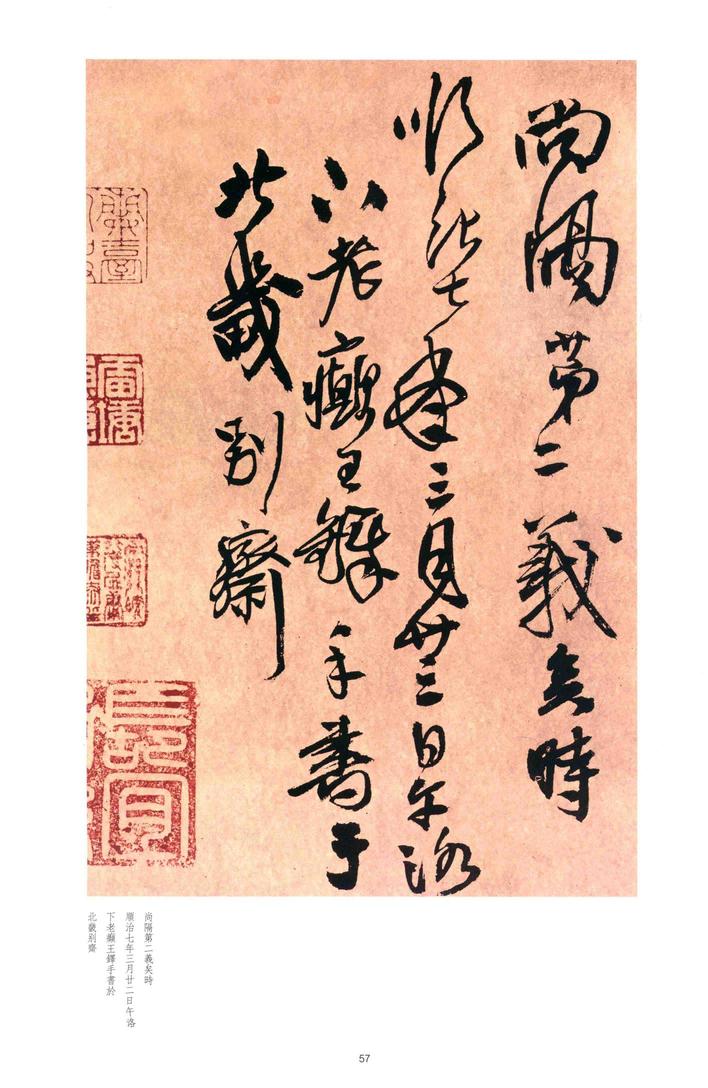 尚隔第二義矣時
順治七年三月廿三日午洛
下老癲王鐸手書于
北畿别齋
尚隔第二義矣時
順治七年三月廿二日午洛
下老癲王鐸手書於
北畿别齋
57